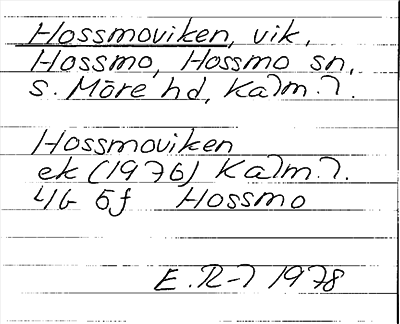 Hossmoviken, vik,
Hossmo, Hossmo sn,
S. Möre hd, Kalm. l.
Hossmoviken
ek (1976) Kalm. l.
4G 5f Hossmo
E. R-l 1978